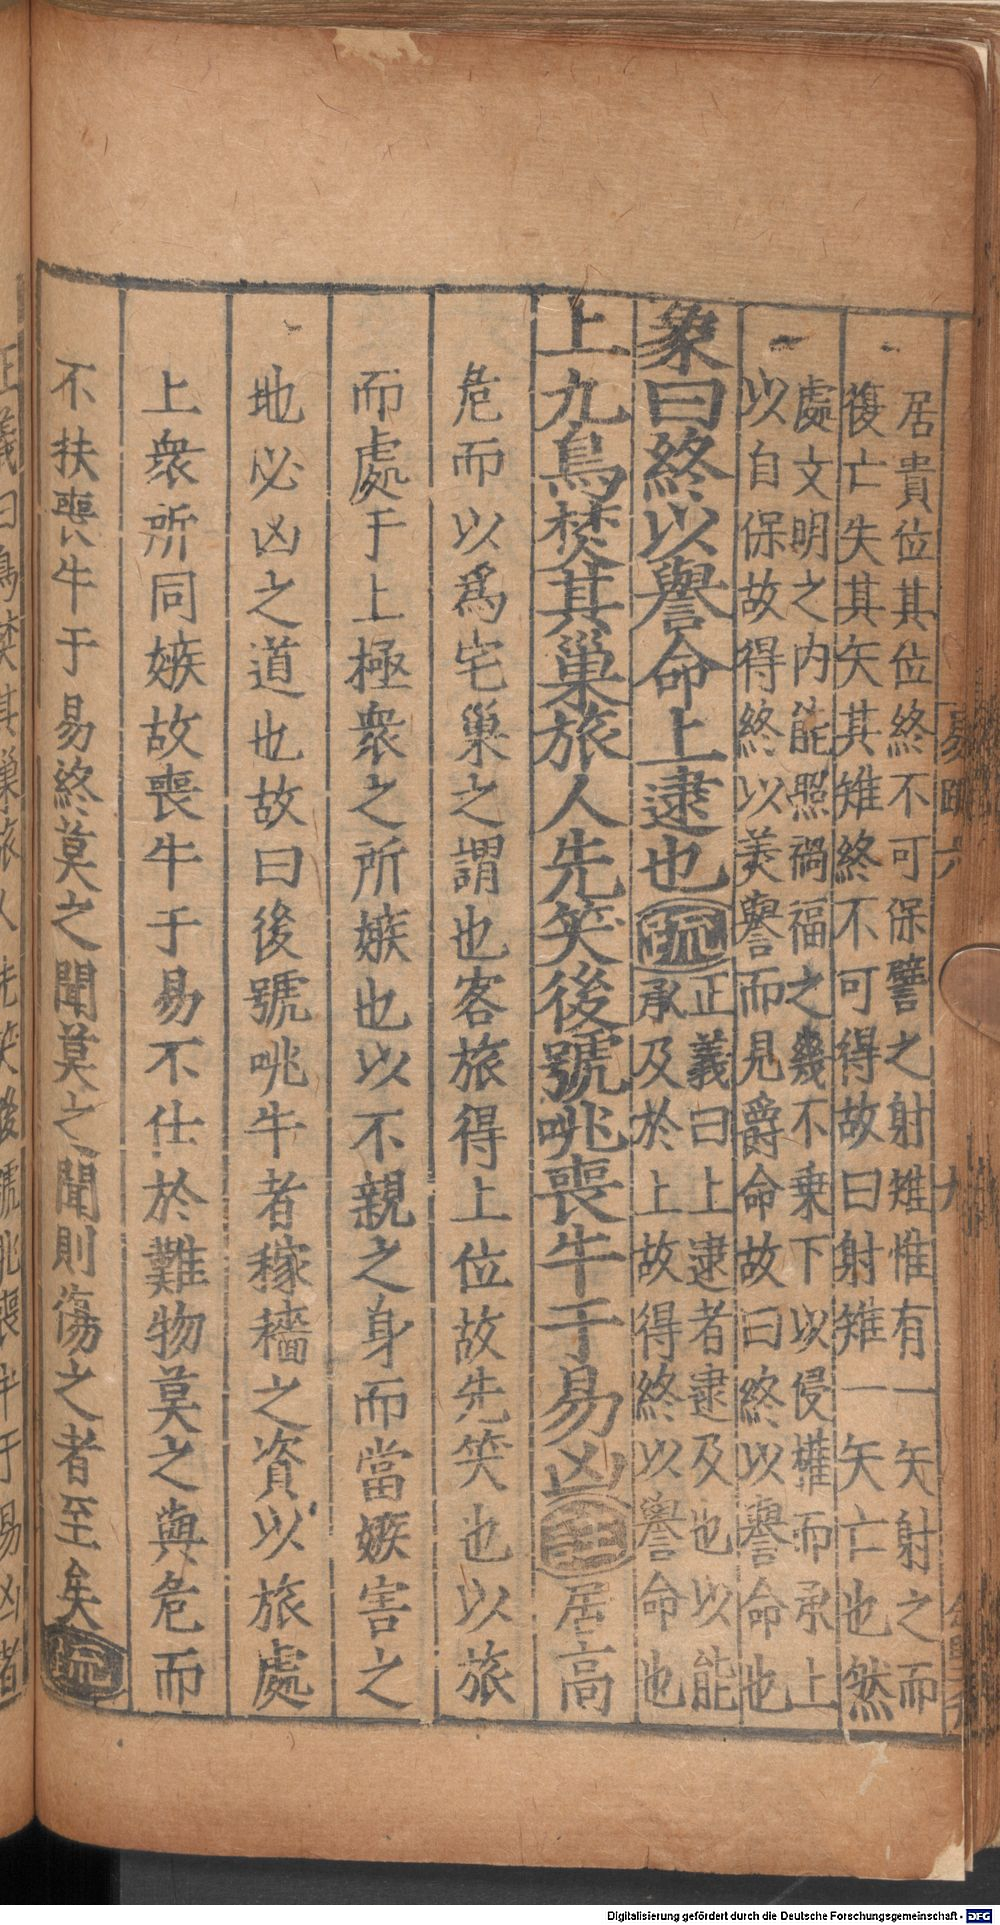 居貴位其位終不可保譬之射雉惟有一矢射之而
復亡失其矢其雉終不可得故曰射雉一矢亡也然
處文明之内能照禍福之幾不乗下以侵權而承上
以自保故得終以美譽而見爵命故曰終以譽命也
象曰終以譽命上逮也疏正義曰上逮者逮及也以能
承及於上故得終以譽命也
上九鳥焚其巢旅人先笑後號咷喪牛于易凶註居高
危而以爲宅巢之謂也客旅得上位故先笑也以旅
而處于上極衆之所嫉也以不親之身而當嫉害之
地必凶之道也故曰後號咷牛者稼穡之資以旅處
上衆所同嫉故喪牛于易不仕於難物莫之與危而
不扶喪牛于易終莫之聞莫之聞則傷之者至矣疏
易疏六
九
正義曰鳥焚其巢旅人先笑後號咷喪牛于易凶者
Digitalisierung gefördert durch die Deutsche Forschungsgemeinschaft - DFG